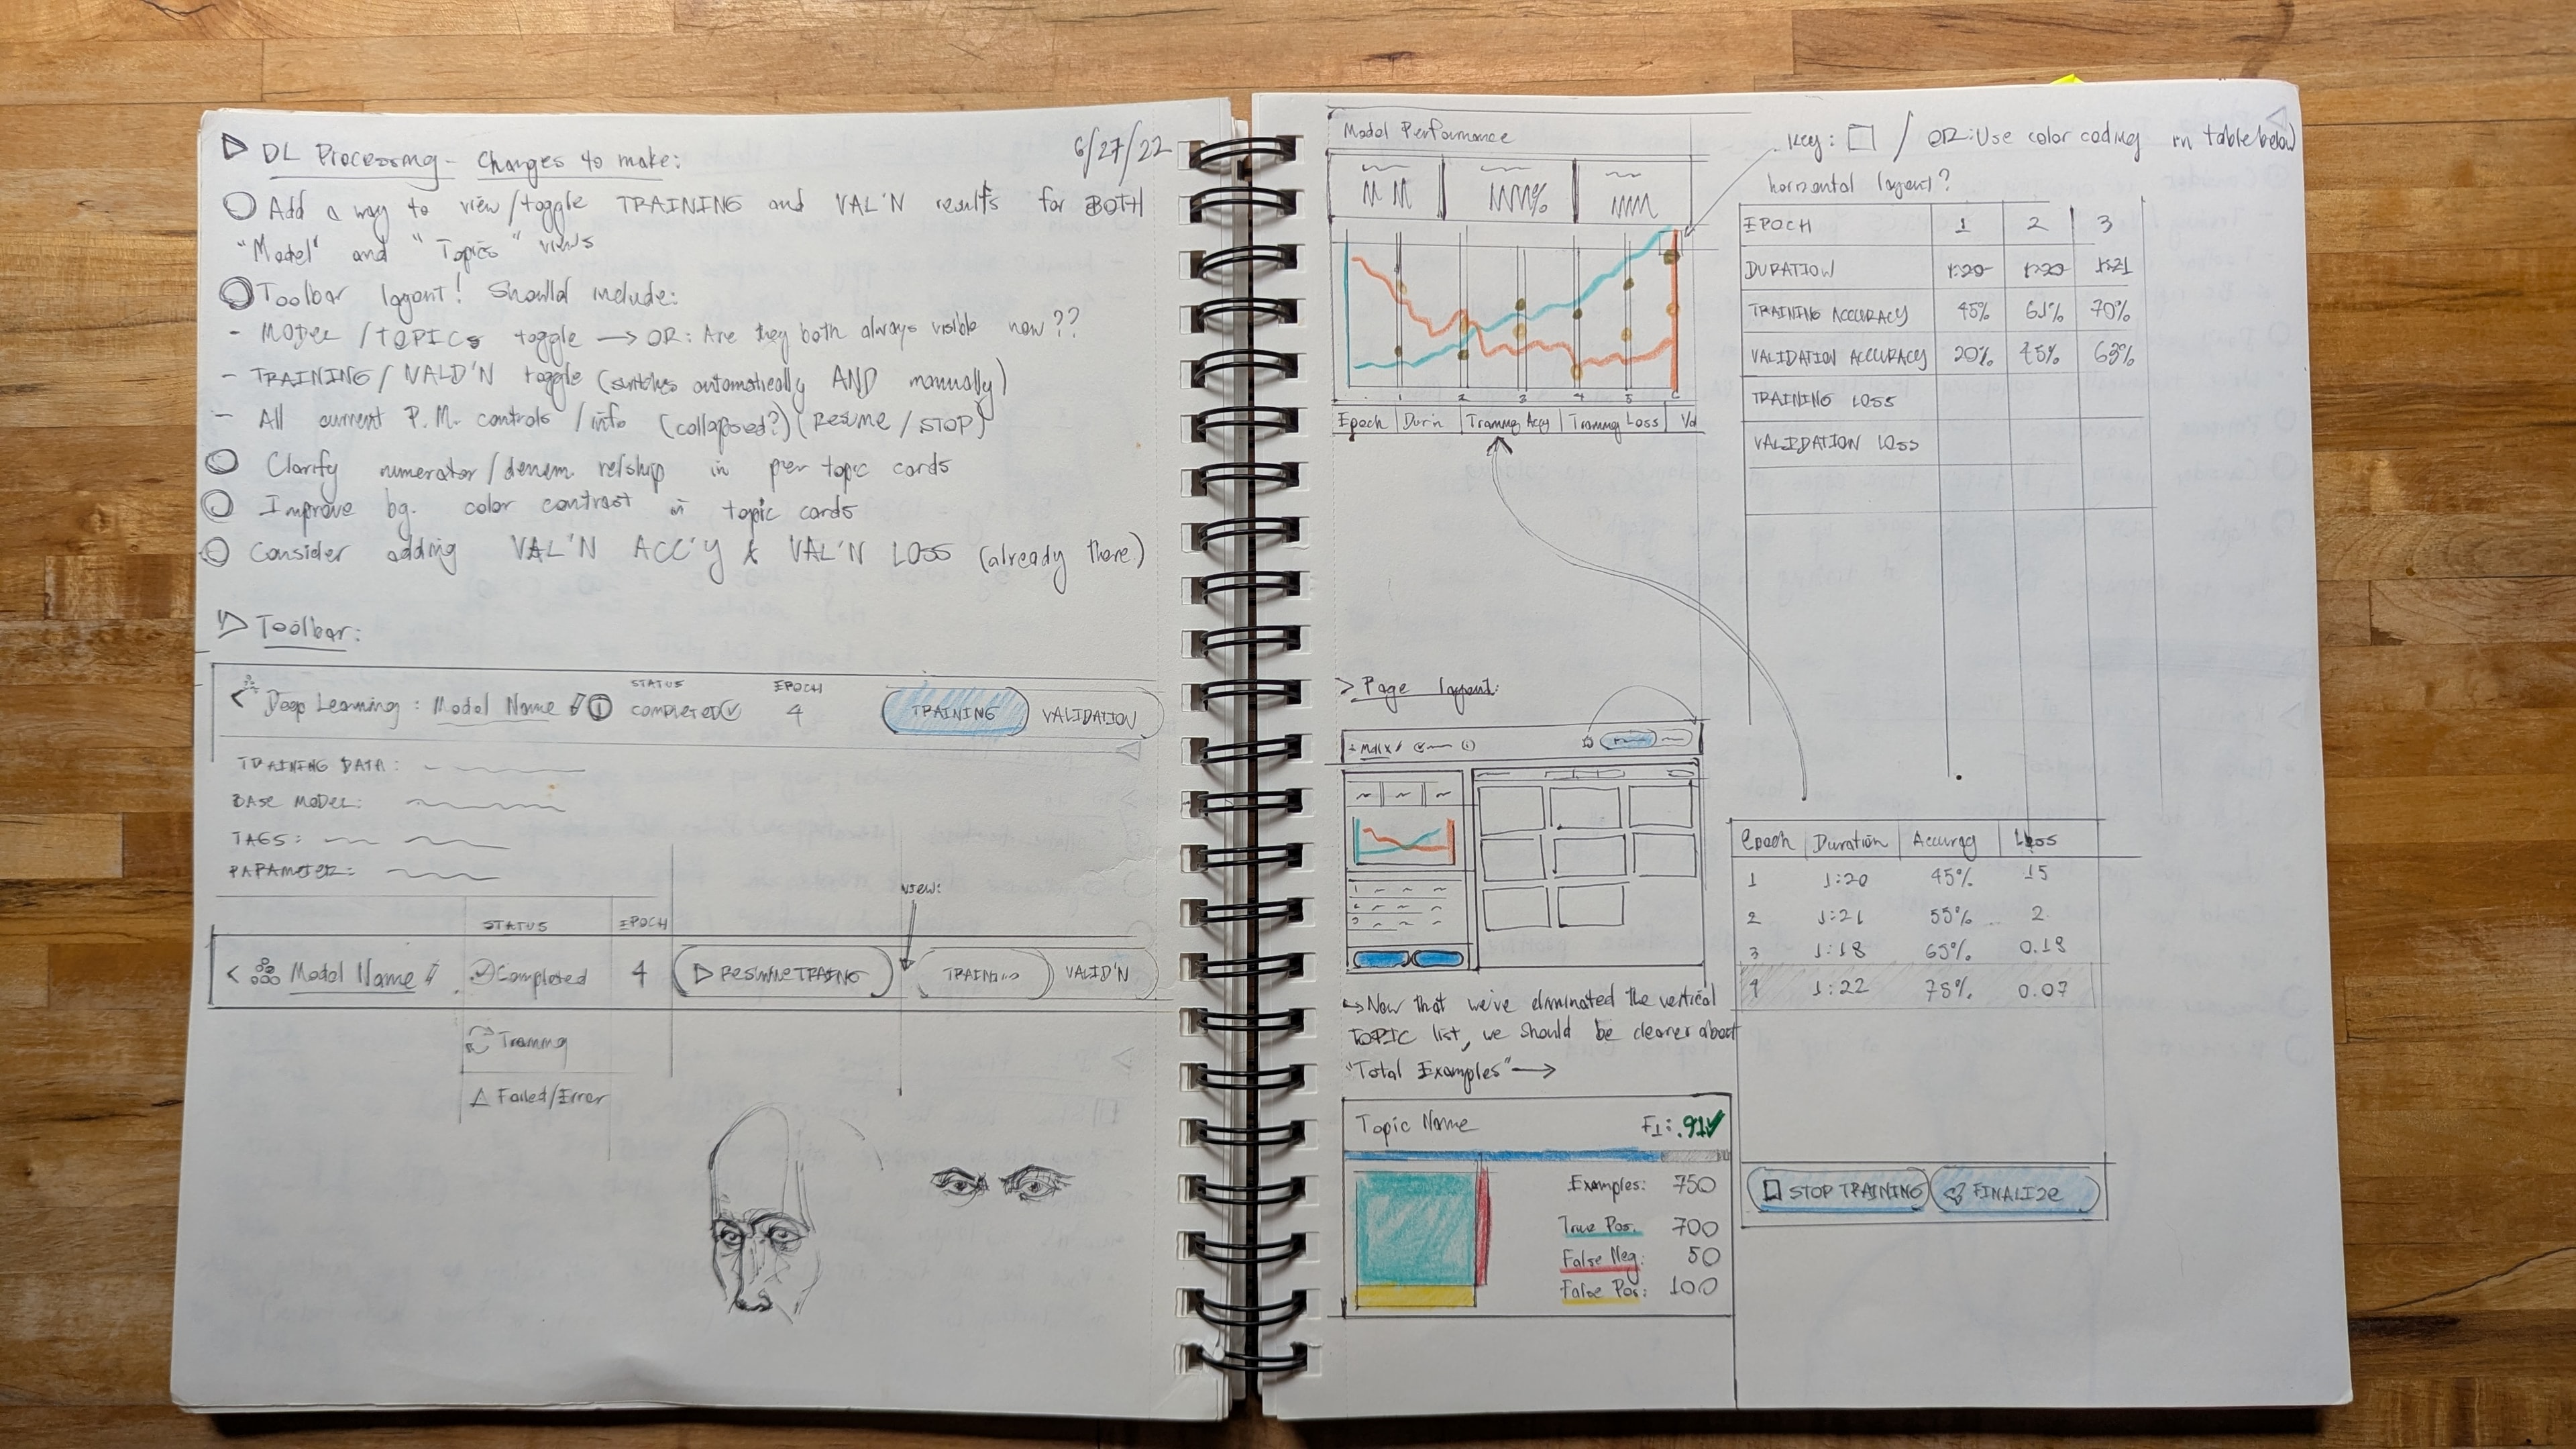 DL Processing - Changes to make:
6/27/22
Add a way to view/toggle TRAINING and VAL'N results for BOTH
"Model" and "Topics" views
Toolbar layout! Should include:
- MODEL/TOPICS toggle → OR: Are they both always visible now??
- TRAINING/VALID'N toggle (switches automatically AND manually)
- All current P.M. controls/info (collapsed?) (RESUME/STOP)
Clarify numerator/denom. rel'ship in per topic cards
Improve bg. color contrast in topic cards
Consider adding VAL'N ACC'Y & VAL'N LOSS (already there)
Toolbar:
STATUS
EPOCH
< Deep Learning: Model Name
COMPLETED
4
TRAINING
VALIDATION
TRAINING DATA:
BASE MODEL:
TAGS:
PARAMETER:
VIEW:
STATUS
EPOCH
< Model Name
Completed
4
RESUME TRAING
TRAIN
VALID'N
Training
Failed/Error
Model Performance
Key: / OR: Use color coding in table below
horizontal layout?
1 2 3 4 5 6
Epoch | Dur'n | Training Acc'y | Training Loss | Val
EPOCH 1 2 3
DURATION 1:20 1:20 1:21
TRAINING ACCURACY 45% 61% 70%
VALIDATION ACCURACY 20% 45% 63%
TRAINING LOSS
VALIDATION LOSS
> Page layout:
1
2
3
Now that we've eliminated the vertical
TOPIC list, we should be clearer about
"Total Examples" →
Topic Name F1: .91
Examples: 750
True Pos. 700
False Neg: 50
False Pos: 100
Epoch Duration Accuracy Loss
1 1:20 45% 15
2 1:21 55% 2
3 1:18 65% 0.18
4 1:22 75% 0.07
STOP TRAINING
FINALIZE